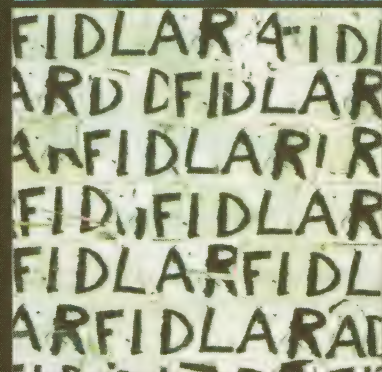 FIDLAR 4 IDI
ARD DFIDLAR
FIDLARI R
FID FIDLAR
FIDLARFIDL
ARFIDLARAD